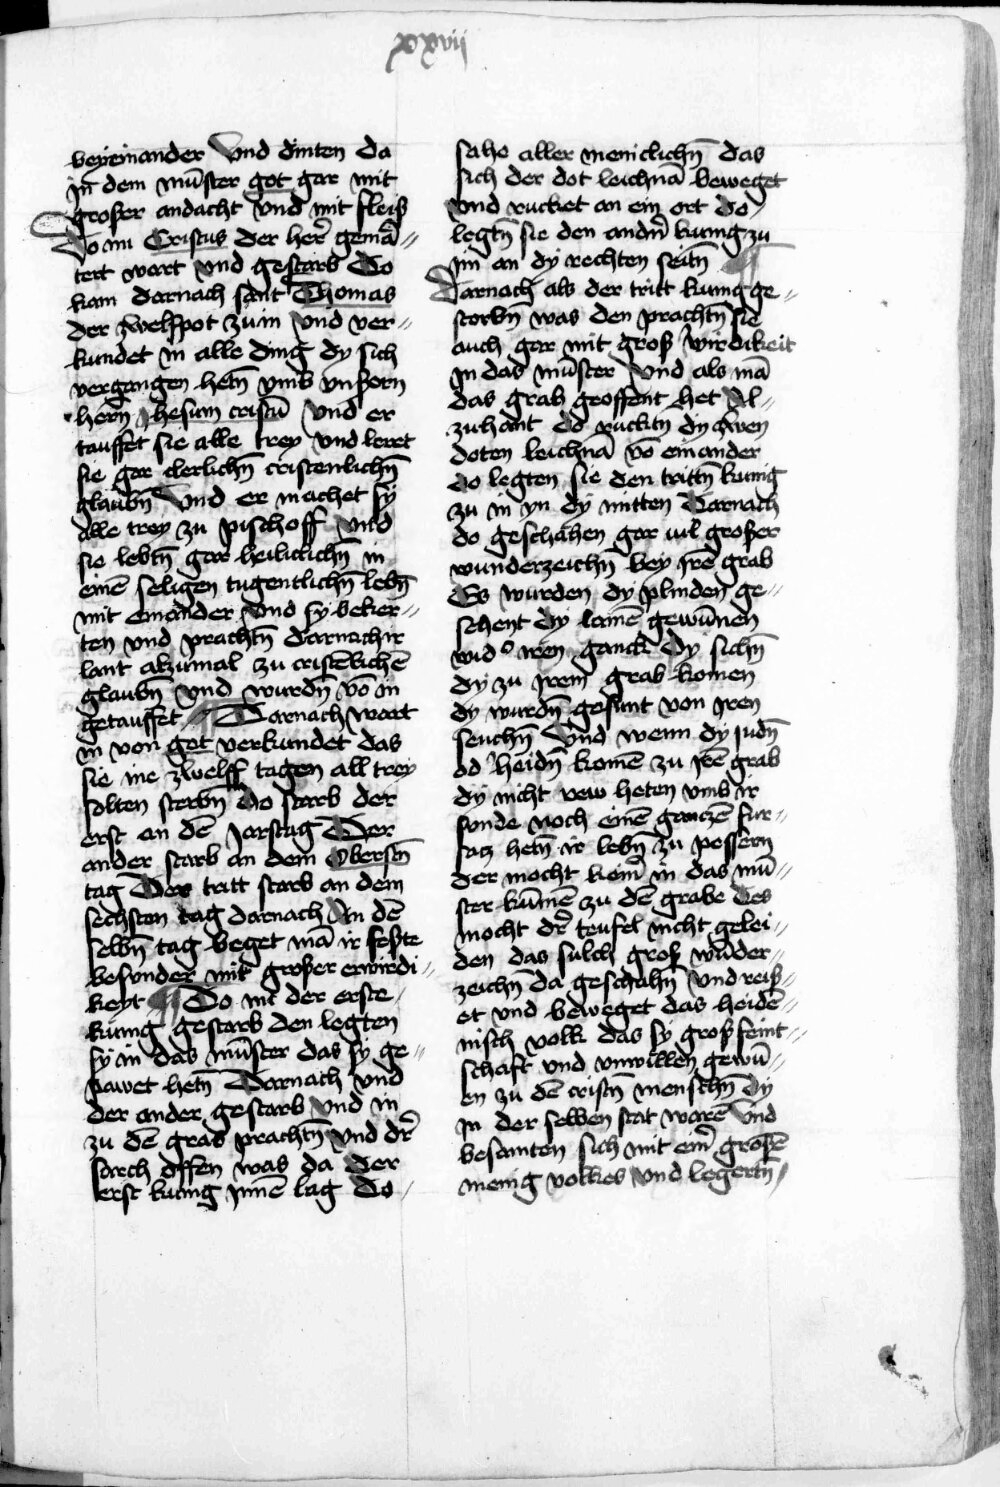 xxvij
beyeinander Vnd dinten da
in dem mu̅ster got gar mit
großer andacht vnd mit fleiß
Do nu Cristus der her̅ gema̅〃
tert wart vnd gestarb Do
kam darnach sant Thomas
der zwelfpot zu in vnd ver〃
kundet in alle ding dy sich
vergangen hetn̅ vmb vnßern
hern̅ Jhesum cristu̅ Vnd er
tauffet sie alle trey vnd leret
sie gar clerlichn̅ cristenlichn̅
glaubn̅ Vnd er machet sy
alle trey zu pischoff vnd
sie lebtn̅ gar heiliclichn̅ in
eine̅ seligen tugentlichn̅ lebn̅
mit einander Vnd sy beker〃
ten vnd prachtn̅ darnach ir
lant alzumal zu criste̅liche̅
glaubn̅ vnd wurdn̅ vo̅ in
getauffet Darnach wart
in von got verkundet das
sie ine zwelff tagen all trey
solten sterbn̅ Do starb der
erst an de̅ Jarstag Der
ander starb an dem Oberstn̅
tag Der tritt starb an dem
sechsten tag darnach An de̅
selbn̅ tag beget ma̅ ir feste
besunder mit großer erwirdi〃
keyt Do nu der erste
kunig gestarb den legten
sy in das mu̅ster das sy ge〃
pawet hetn̅ Darnach vnd
der ander gestarb vnd in
zu de̅ grab prachtn̅ vnd dr̅
sarch offen was da der
erst kunig Inne̅ lag Do
sahe aller meniclichn̅ das
sich der dot leichna̅ beweget
vnd rucket an ein ort do
legtn̅ sie den andn̅ kunig zu
im an dy rechten seitn̅
Darnach als der tritt kunig ge〃
storbn̅ was den prachtn̅ sie
auch gar mit groß wirdikeit
in das mu̅ster Vnd als ma̅
das grab geoffent het Al〃
zuhant do rucktn̅ dy zwen
doten leichna̅ vo̅ einander
do legten sie den trittn̅ kunig
zu in yn dy mitten Darnach
do geschahen gar vil großer
wunderzeichn̅ bey Ire̅ grab
Es wurden dy plinden ge〃
sehent dy lame̅ gewu̅nen
wid iren ganck dy sichn̅
dy zu Irem grab komen
dy wurdn̅ gesunt von Iren
seuchn̅ Vnd wenn dy judn̅
od heidn̅ kome̅ zu Ire̅ grab
dy nicht rew heten vmb ir
sunde noch eine̅ gancze̅ fur〃
sacz hetn̅ ir lebn̅ zu pessern
der mocht keinr̅ in das mu̅〃
ster ku̅me̅ zu de̅ grabe Des
mocht dr̅ teufel nicht gelei〃
den das sulch groß wu̅der〃
zeichn̅ da geschahn̅ Vnd reiß〃
et vnd beweget das heide̅〃
nisch volk das sy groß feint〃
schaft vnd vnwillen gewu̅〃
en zu de̅ cristn̅ menschn̅ dy
in der selben stat ware̅ Vnd
besamten sich mit einr̅ große̅
menig volkes vnd legertn̅